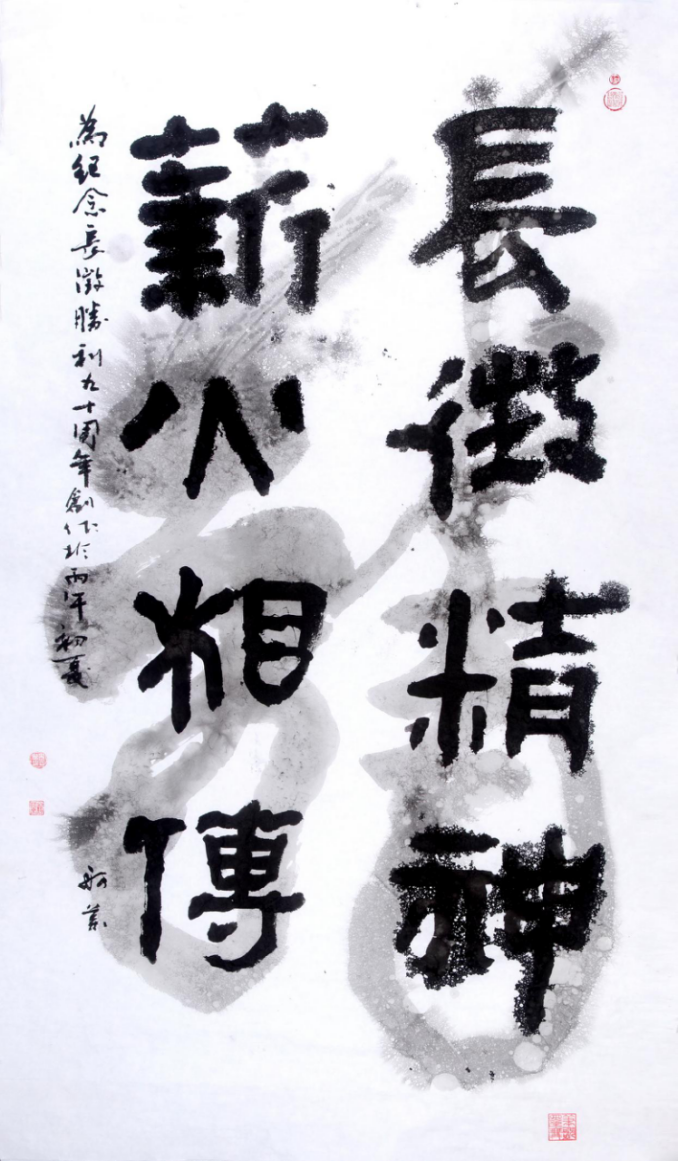 長徵精神
薪火相傳
為紀念長徵勝利九十周年創作於丙午初夏